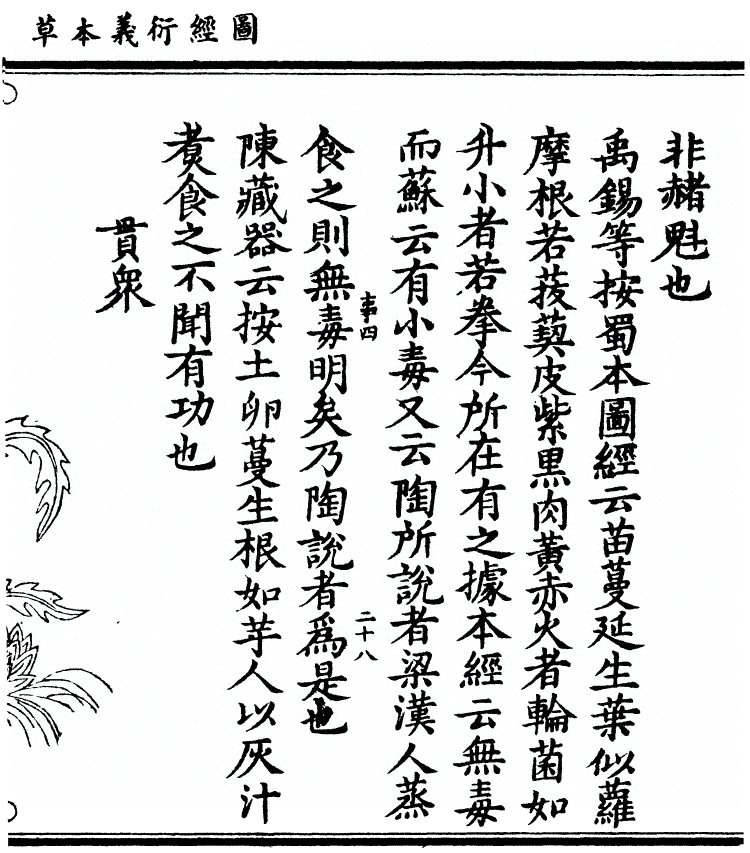 圖經衍義本草
非赭魁也
禹錫等按蜀本圖經云苗蔓延生葉似蘿
摩根若菝葜皮紫黒肉黃赤大者輪菌如
升小者若拳今所在有之據本經云無毒
而蘇云有小毒又云陶所說者梁漢人蒸
食之則無毒明矣乃陶說者爲是也
事四
二十八
陳藏器云按土卵蔓生根如芋人以灰汁
煑食之不聞有功也
貫衆